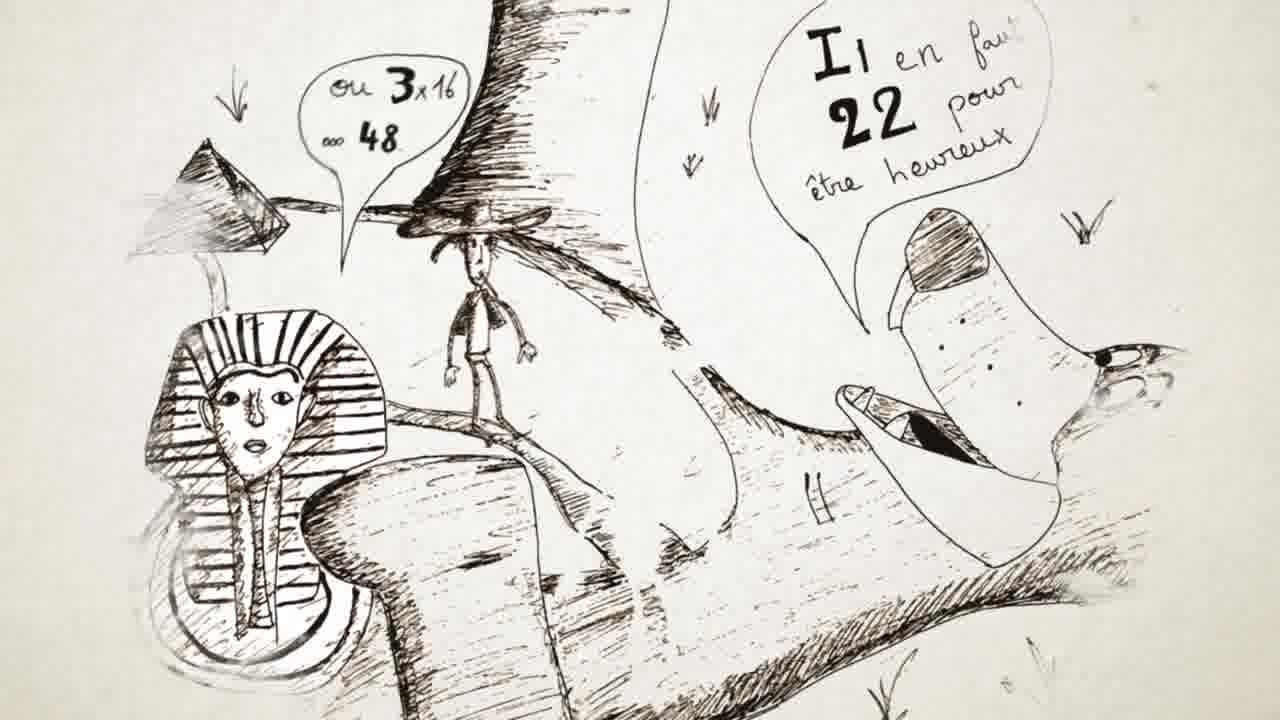 ou 3x16
... 48
Il en faut
22 pour
être heureux